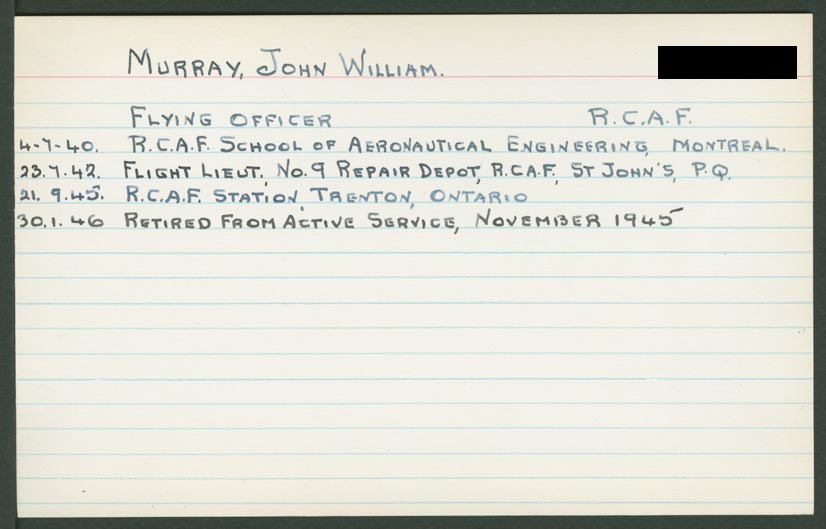 MURRAY, JOHN WILLIAM.
FLYING OFFICER R.C.A.F.
4-7-40. R.C.A.F. SCHOOL OF AERONAUTICAL ENGINEERING, MONTREAL.
23.7.42. FLIGHT LIEUT. NO.9 REPAIR DEPOT, R.C.A.F., ST JOHN'S, P.Q.
21.9.45. R.C.A.F. STATION, TRENTON, ONTARIO
30.1.46 RETIRED FROM ACTIVE SERVICE, NOVEMBER 1945